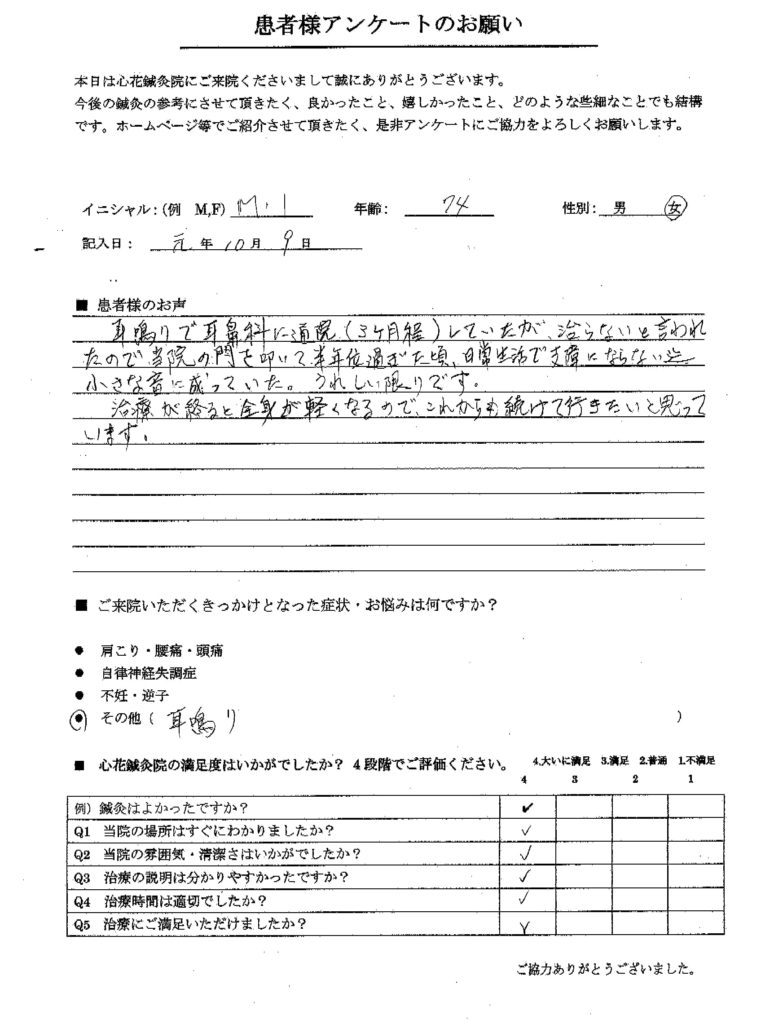 患者様アンケートのお願い
本日は心花鍼灸院にご来院くださいまして誠にありがとうございます。
今後の鍼灸の参考にさせて頂きたく、良かったこと、嬉しかったこと、どのような些細なことでも結構
です。ホームページ等でご紹介させて頂きたく、是非アンケートにご協力をよろしくお願いします。
イニシャル：（例　M,F） M・I　年齢： 74　性別： 男　女
記入日： 元 年 10 月 9 日
■ 患者様のお声
耳鳴りで耳鼻科に通院（3ヶ月程）していたが、治らないと言われ
たので当院の門を叩いて半年位過ぎた頃、日常生活で支障にならない迄
小さな音に成っていた。うれしい限りです。
治療が終ると全身が軽くなるので、これからも続けて行きたいと思って
います。
■ ご来院いただくきっかけとなった症状・お悩みは何ですか？
● 肩こり・腰痛・頭痛
● 自律神経失調症
● 不妊・逆子
● その他（ 耳鳴り ）
■ 心花鍼灸院の満足度はいかがでしたか？ 4段階でご評価ください。 4.大いに満足 3.満足 2.普通 1.不満足
4 3 2 1
例）鍼灸はよかったですか？ ✓
Q1 当院の場所はすぐにわかりましたか？ ✓
Q2 当院の雰囲気・清潔さはいかがでしたか？ ✓
Q3 治療の説明は分かりやすかったですか？ ✓
Q4 治療時間は適切でしたか？ ✓
Q5 治療にご満足いただけましたか？ ✓
ご協力ありがとうございました。